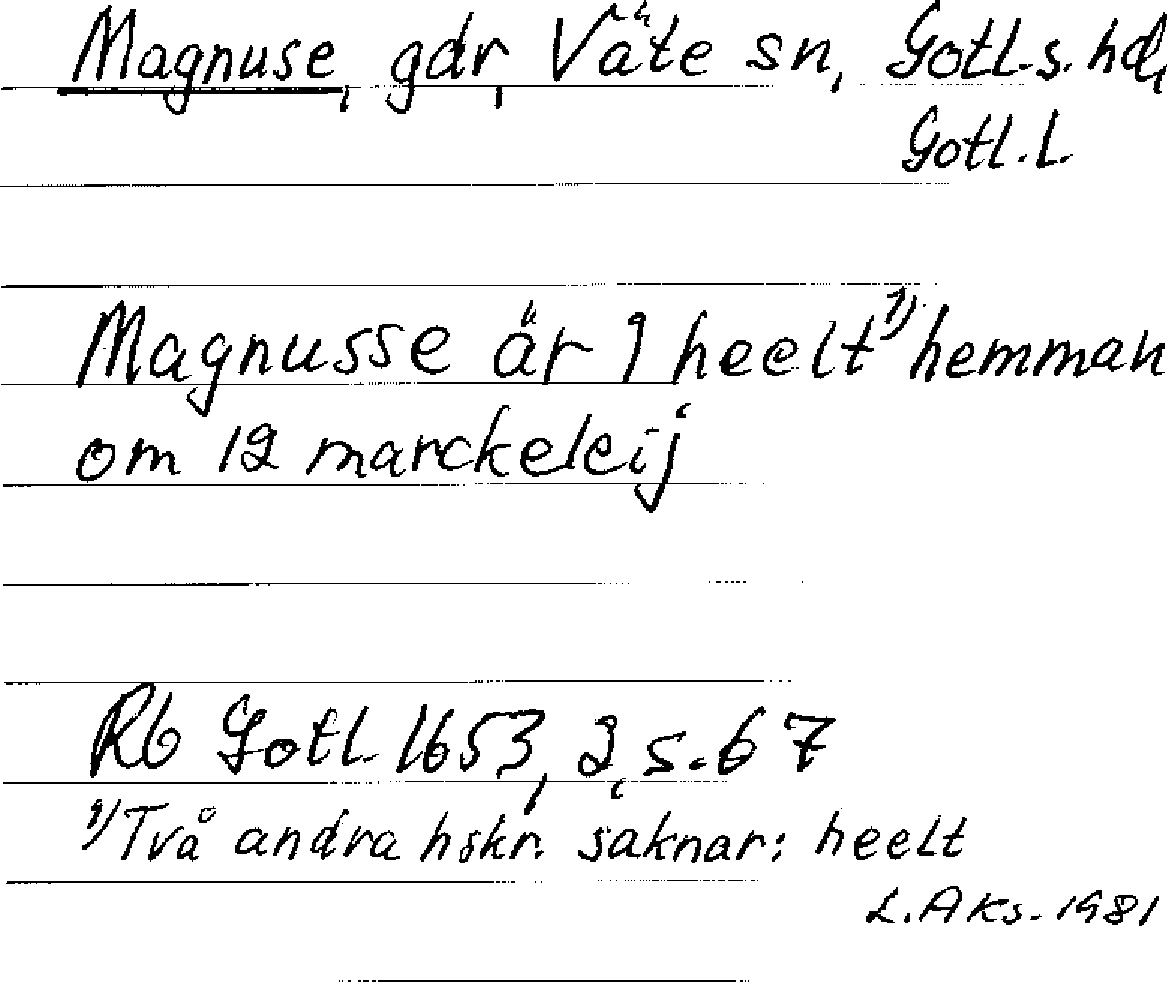 Magnuse, gdr, Väte sn, Gotl. s. hd,
Gotl. l.
Magnusse är 1 heelt 1) hemman
om 12 marckeleij
Rb Gotl. 1653, 2, s. 67
1) Två andra hskr. saknar: heelt
L. Aks. 1981